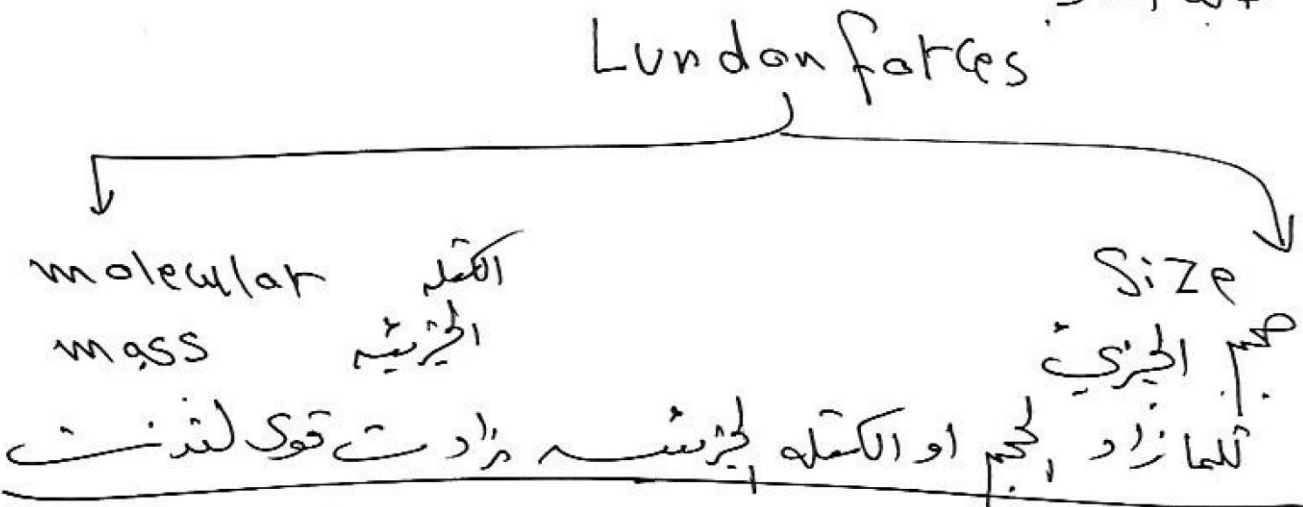 Lundon forces
molecular الكتله Size
mass الجزيئيه حجم الجزيئ
كلما زاد الحجم او الكتله الجزيئيه زادت قوى لندن